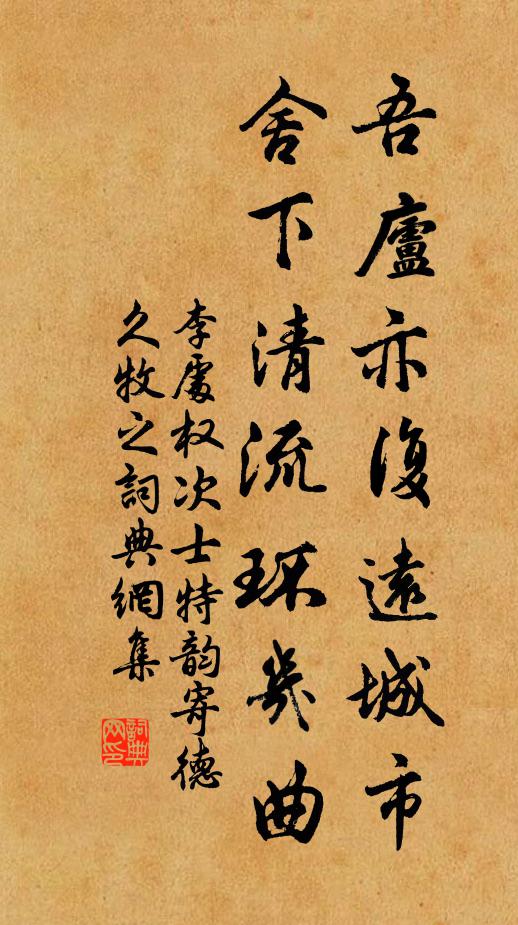 吾廬亦復遠城市
舍下清流环幾曲
李處权次士特韵寄德
久牧之詞典網集
詞典
网印